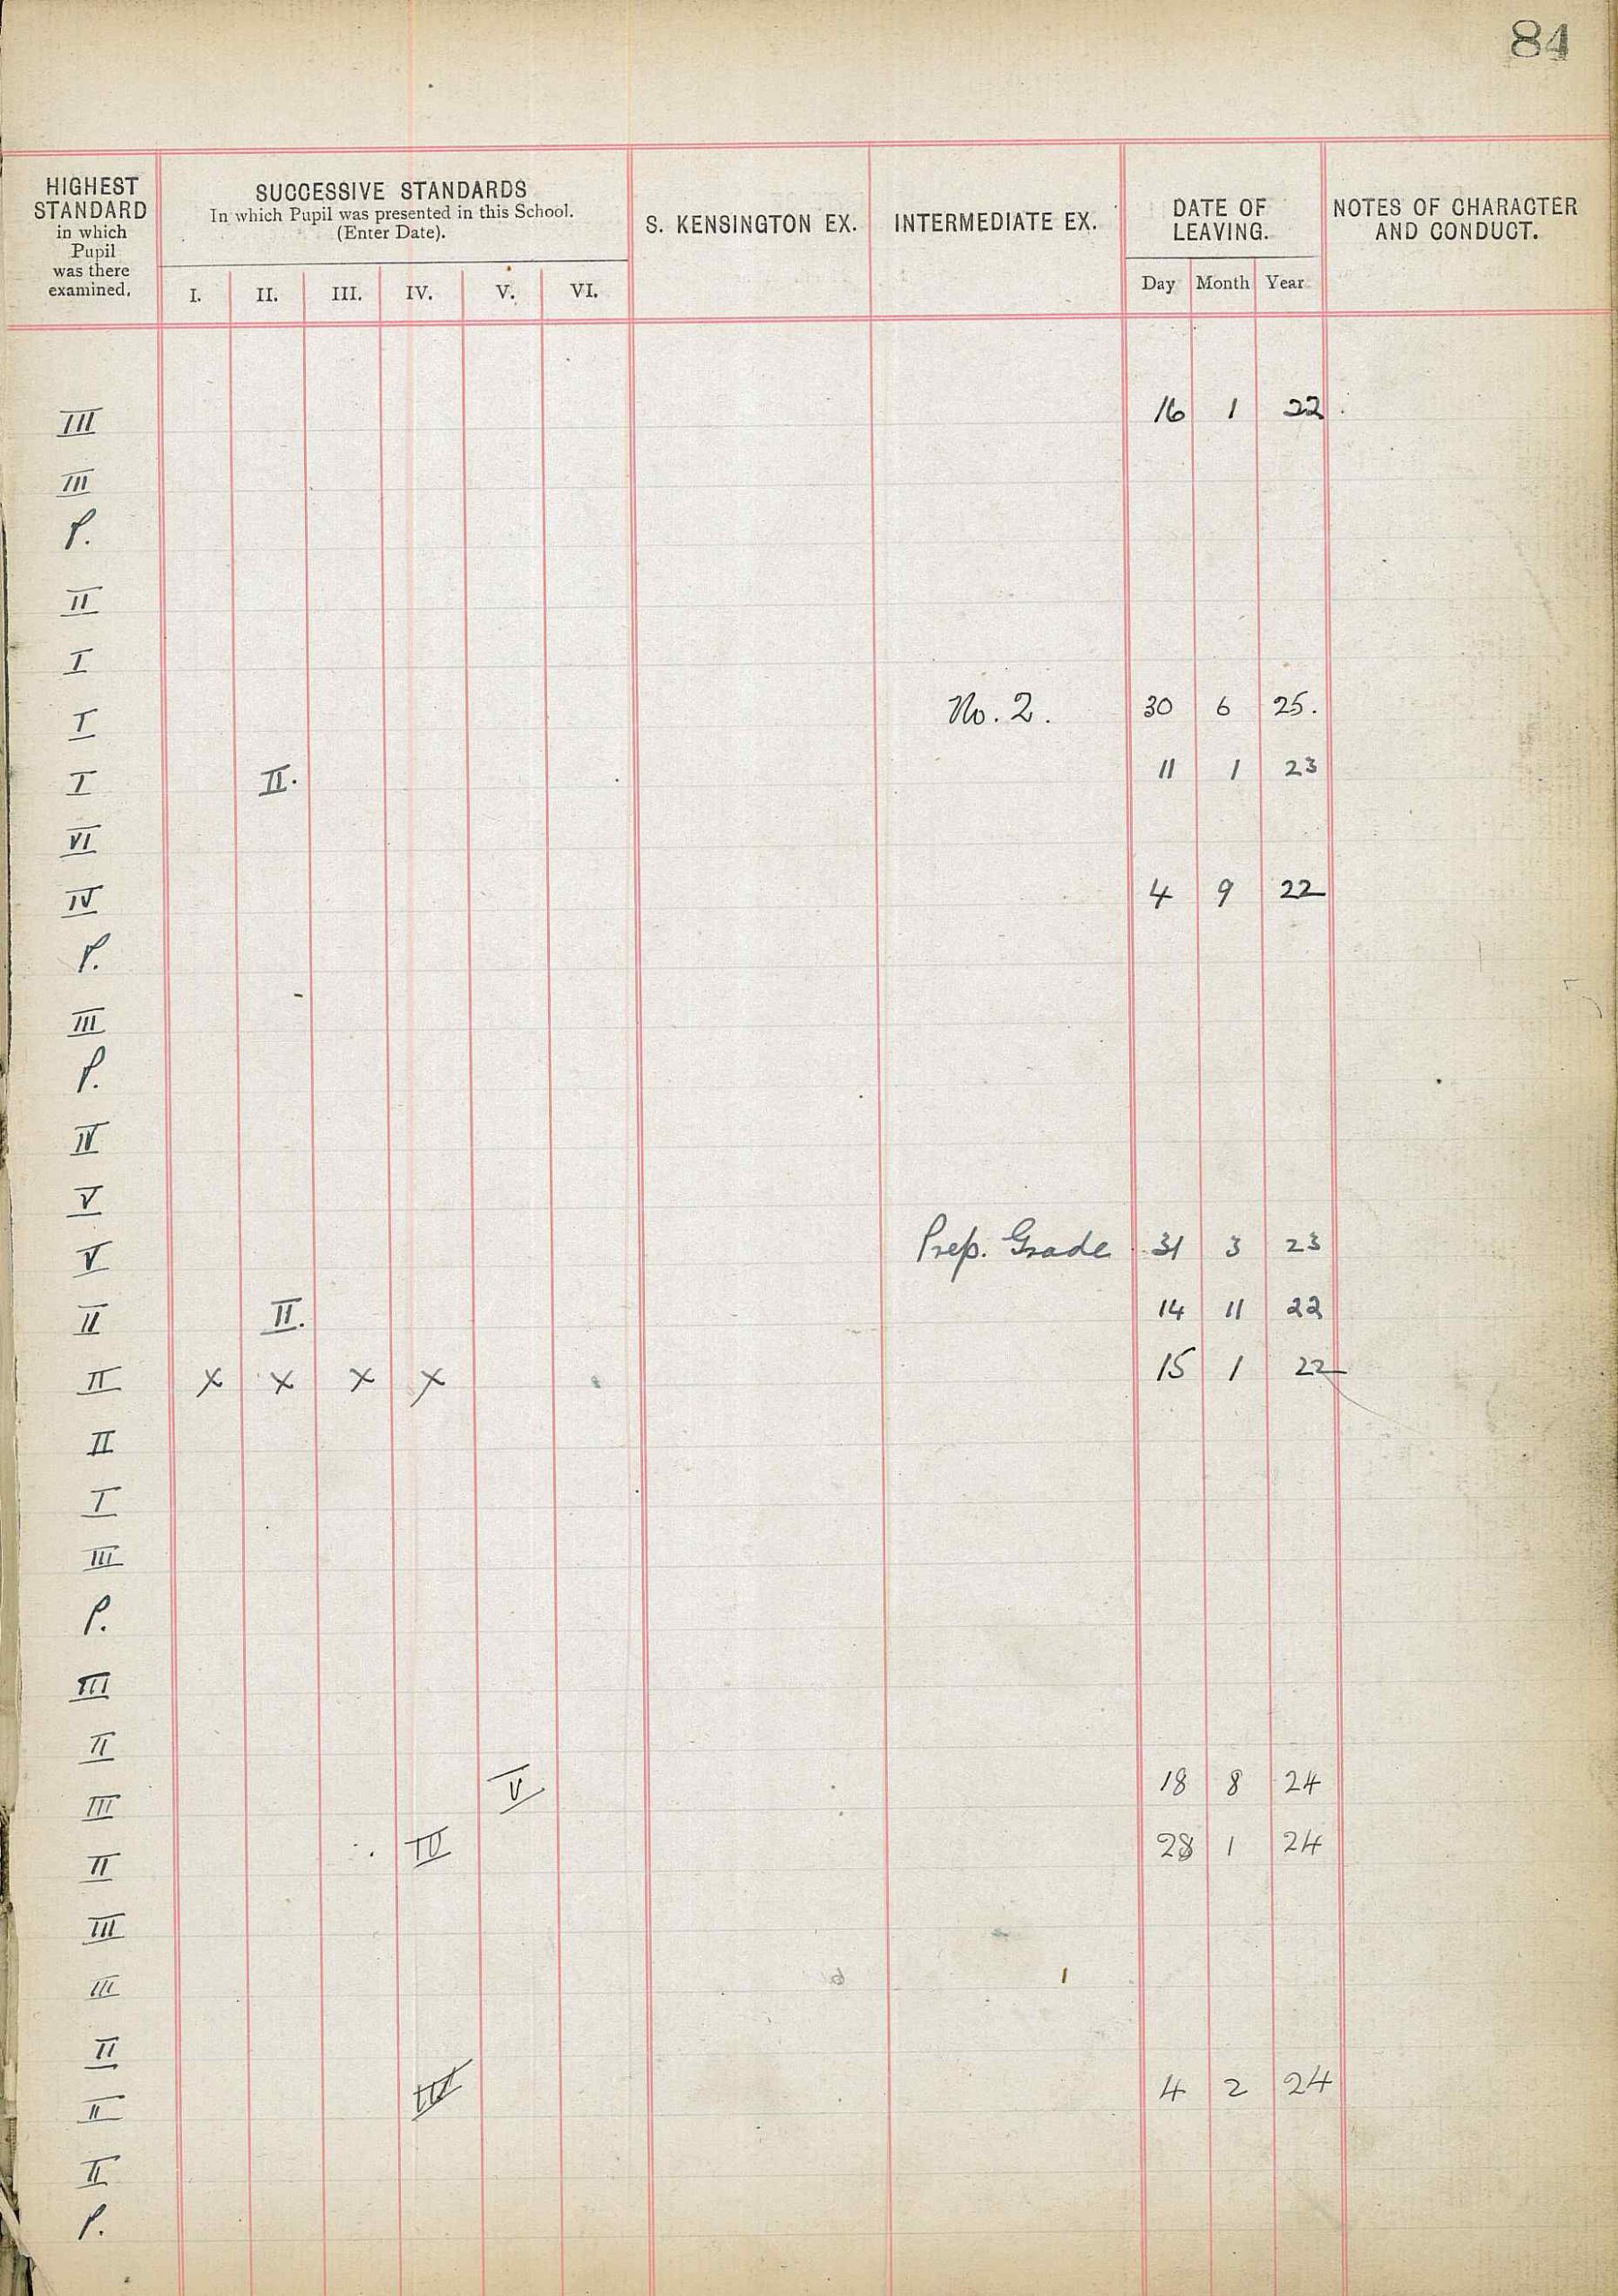 84
HIGHEST STANDARD in which Pupil was there examined.
SUCCESSIVE STANDARDS
In which Pupil was presented in this School.
(Enter Date).
I. II. III. IV. V. VI.
S. KENSINGTON EX.
INTERMEDIATE EX.
DATE OF LEAVING.
Day Month Year
NOTES OF CHARACTER AND CONDUCT.
III 16 1 22
III
P.
II
I
I No. 2. 30 6 25.
I II. 11 1 23
VI
IV 4 9 22
P.
III
P.
IV
V
V Prep. Grade 31 3 23
II II. 14 11 22
II x x x x 15 1 22
II
I
III
P.
III
II
III V 18 8 24
II IV 28 1 24
III
III
II
II IV 4 2 24
II
P.